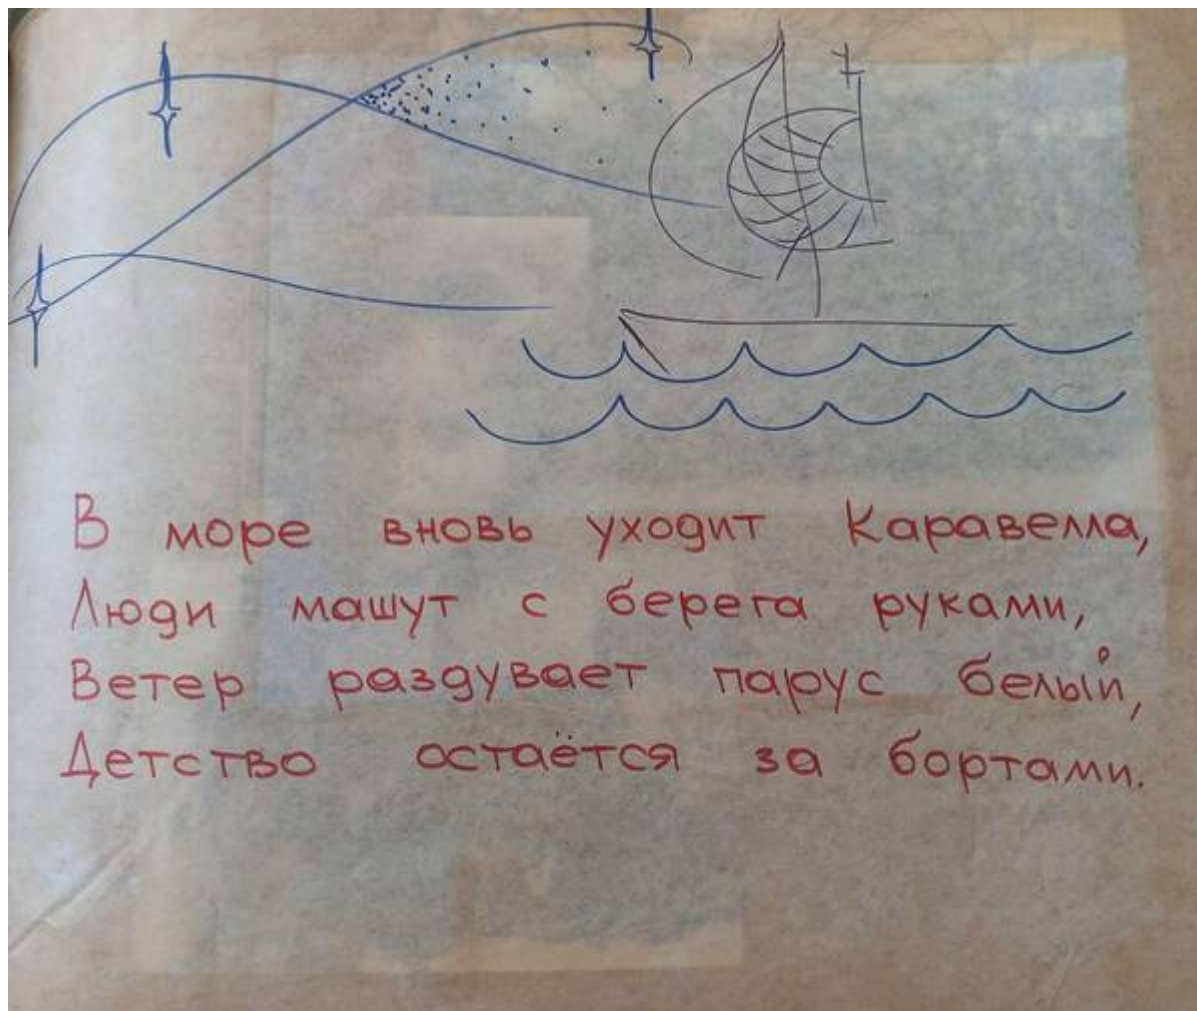 В море вновь уходит Каравелла,
Люди машут с берега руками,
Ветер раздувает парус белый,
Детство остаётся за бортами.